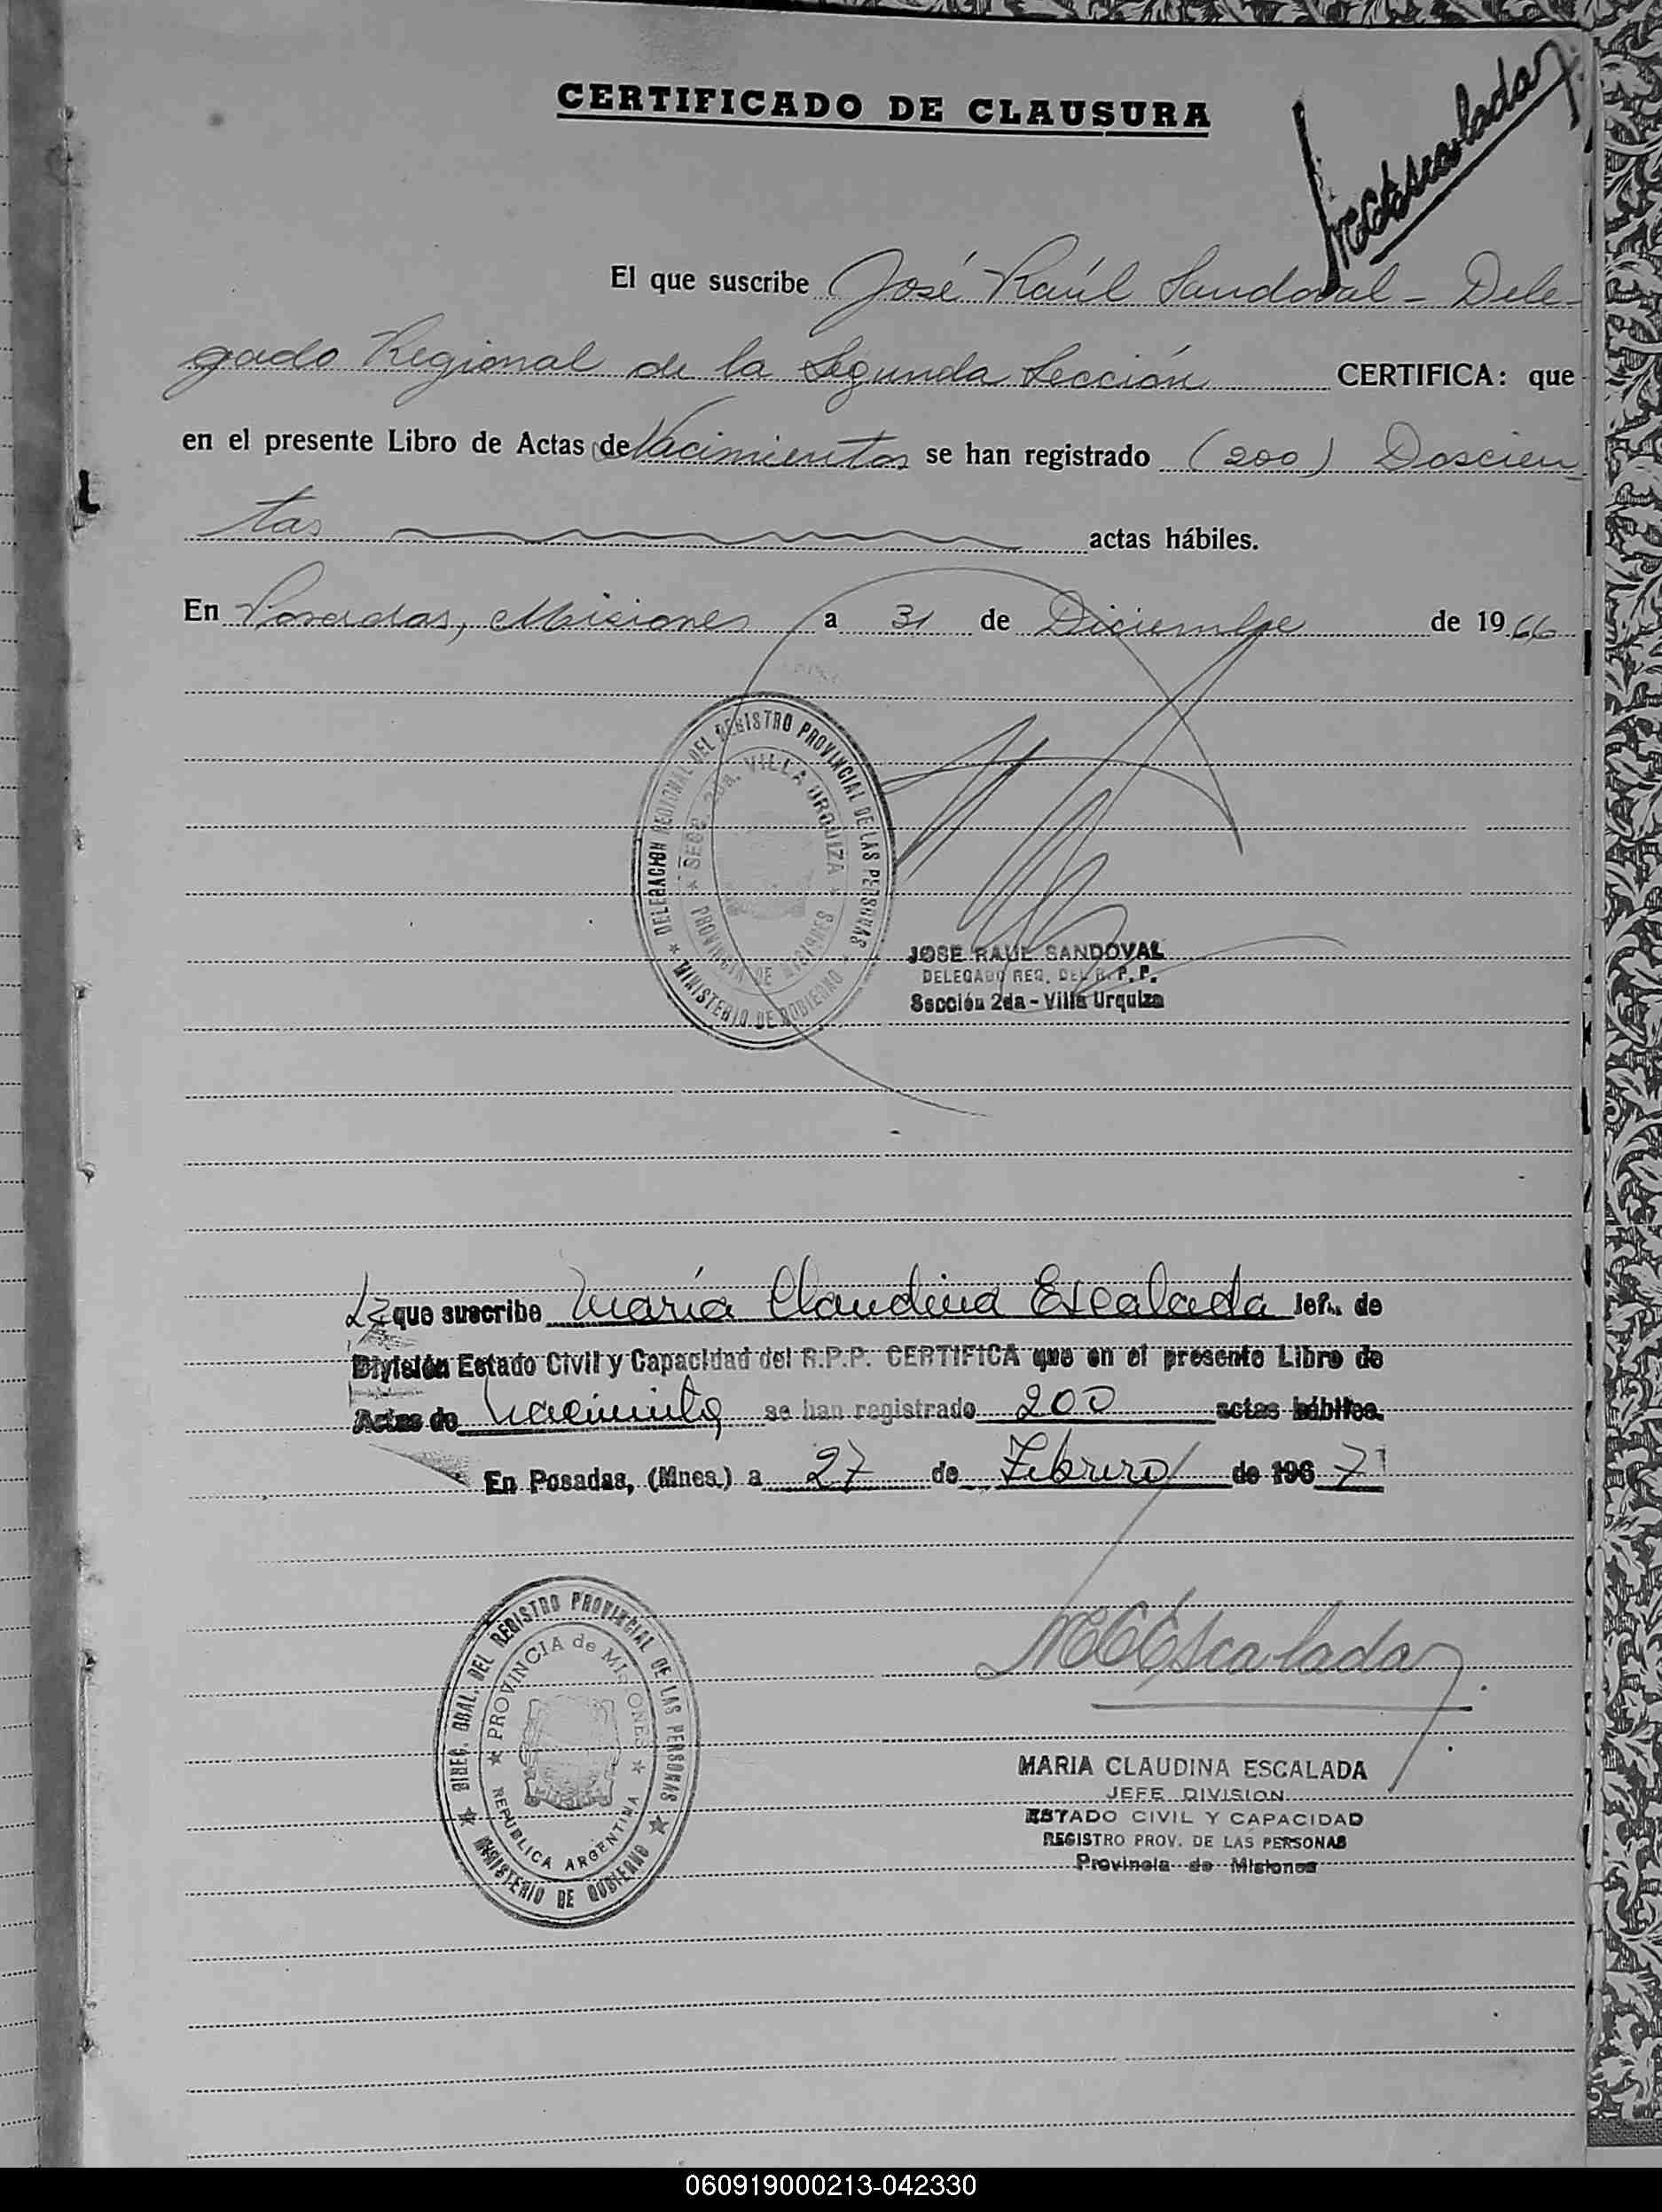 CERTIFICADO DE CLAUSURA
MCEscalada
El que suscribe José Raúl Sandoval - Dele-
gado Regional de la Segunda Sección CERTIFICA: que
en el presente Libro de Actas de Nacimientos se han registrado (200) Doscien-
tas actas hábiles.
En Posadas, Misiones a 31 de Diciembre de 1966
DELEGACION REGIONAL DEL REGISTRO PROVINCIAL DE LAS PERSONAS
SECC. 2da. VILLA URQUIZA
PROVINCIA DE MISIONES
MINISTERIO DE GOBIERNO
JOSE RAUL SANDOVAL
DELEGADO REG. DEL R.P.P.
Sección 2da - Villa Urquiza
La que suscribe María Claudina Escalada Jefe de
División Estado Civil y Capacidad del R.P.P. CERTIFICA que en el presente Libro de
Actas de Nacimiento se han registrado 200 actas hábiles.
En Posadas, (Mnes.) a 27 de Febrero de 1967
DIREC. GRAL. DEL REGISTRO PROVINCIAL DE LAS PERSONAS
PROVINCIA de MISIONES
REPUBLICA ARGENTINA
MINISTERIO DE GOBIERNO
MCEscalada
MARIA CLAUDINA ESCALADA
JEFE DIVISION
ESTADO CIVIL Y CAPACIDAD
REGISTRO PROV. DE LAS PERSONAS
Provincia de Misiones
060919000213-042330